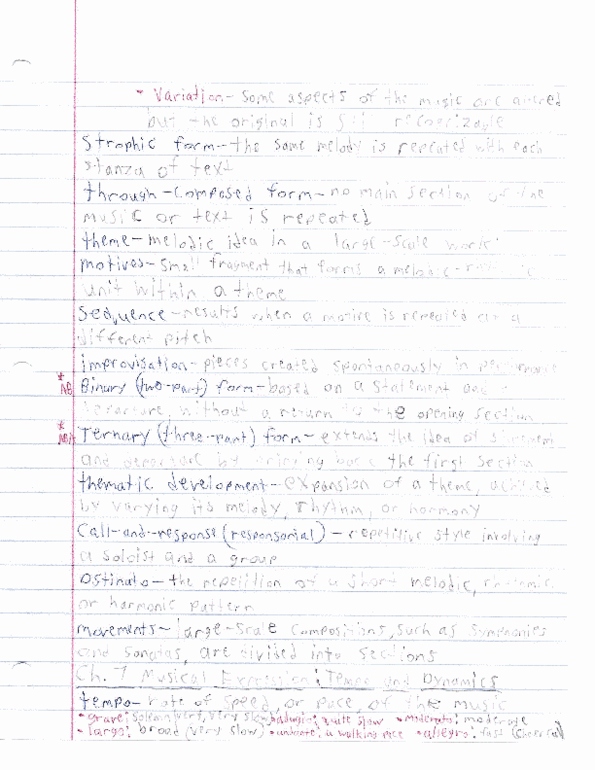 • Variation- Some aspects of the music are altered
but the original is still recognizable
Strophic form- the same melody is repeated with each
stanza of text
through-composed form- no main section of the
music or text is repeated
theme- melodic idea in a large-scale work
motives- small fragment that forms a melodic-
unit within a theme
Sequence- results when a motive is repeated at a
different pitch
improvisation- pieces created spontaneously in performance
* AB Binary (two-part) form- based on a statement and
departure, without a return to the opening section
* Ternary (three-part) form- extends the idea of statement
and departure by bringing back the first section
thematic development- expansion of a theme, achieved
by varying its melody, rhythm, or harmony
Call-and-response (responsorial) - repetitive style involving
a soloist and a group
Ostinato- the repetition of a short melodic, rhythmic
or harmonic pattern
movements- large-scale compositions, such as symphonies
and sonatas, are divided into sections
Ch. 7 Musical Expression: Tempo and Dynamics
tempo- rate of speed, or pace, of the music
• grave: solemn (very, very slow) • adagio: quite slow • moderato: moderate
• largo: broad (very slow) • andante: a walking pace • allegro: fast (cheerful)